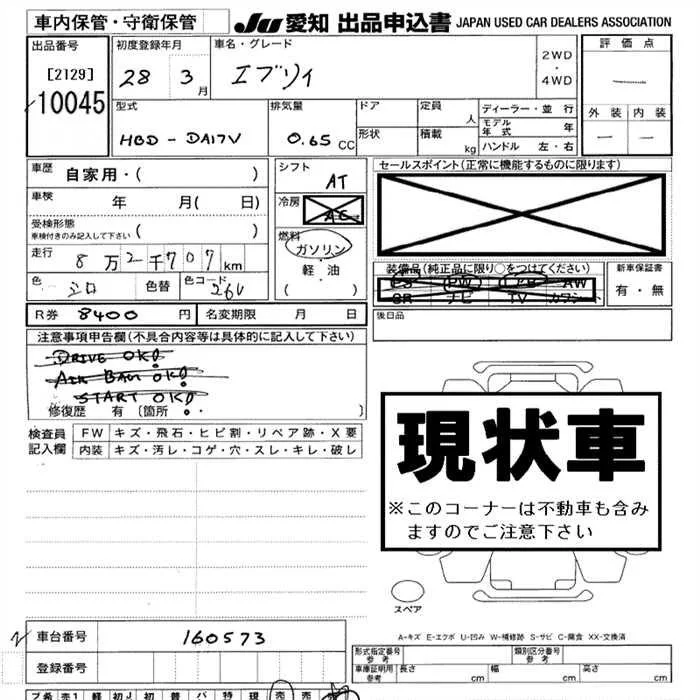 車内保管・守衛保管
JU 愛知 出品申込書 JAPAN USED CAR DEALERS ASSOCIATION
出品番号
[2129]
10045
初度登録年月
28 3 月
車名・グレード
エブリィ
2WD
・
4WD
評価点
外装 内装
型式
HBD-DA17V
排気量
0.65 CC
ドア
形状
定員
人
積載
kg
ディーラー・並 行
モデル年式 年
ハンドル 左・右
車歴 自家用・( )
車検 年 月( 日)
受検形態
車検付きのみ記入して下さい ( )
走行 8万2千707km
色 シロ 色替 色コード 26U
シフト
AT
冷房
AC
燃料
ガソリン
・
軽・油
( )
セールスポイント(正常に機能するものに限ります)
装備品(純正品に限り○をつけてください)
PS PW エアB AW
SR ナビ TV カワシート
新車保証書
有・無
後日品
R券 8400 円 名変期限 月 日
注意事項申告欄(不具合内容等は具体的に記入して下さい)
DRIVE OK!
AIR BAG OK!
START OK!
修復歴 有 〔箇所 〕
検査員
記入欄
FW キズ・飛石・ヒビ割・リペア跡・X要
内装 キズ・汚レ・コゲ・穴・スレ・キレ・破レ
現状車
※このコーナーは不動車も含み
ますのでご注意下さい
スペア
A-キズ E-エクボ U-凹み W-補修跡 S-サビ C-腐食 XX-交換済
2 車台番号 160573
登録番号
形式指定番号
参考
類別区分番号
参考
車庫証明用
参考
長さ cm 幅 cm 高さ cm